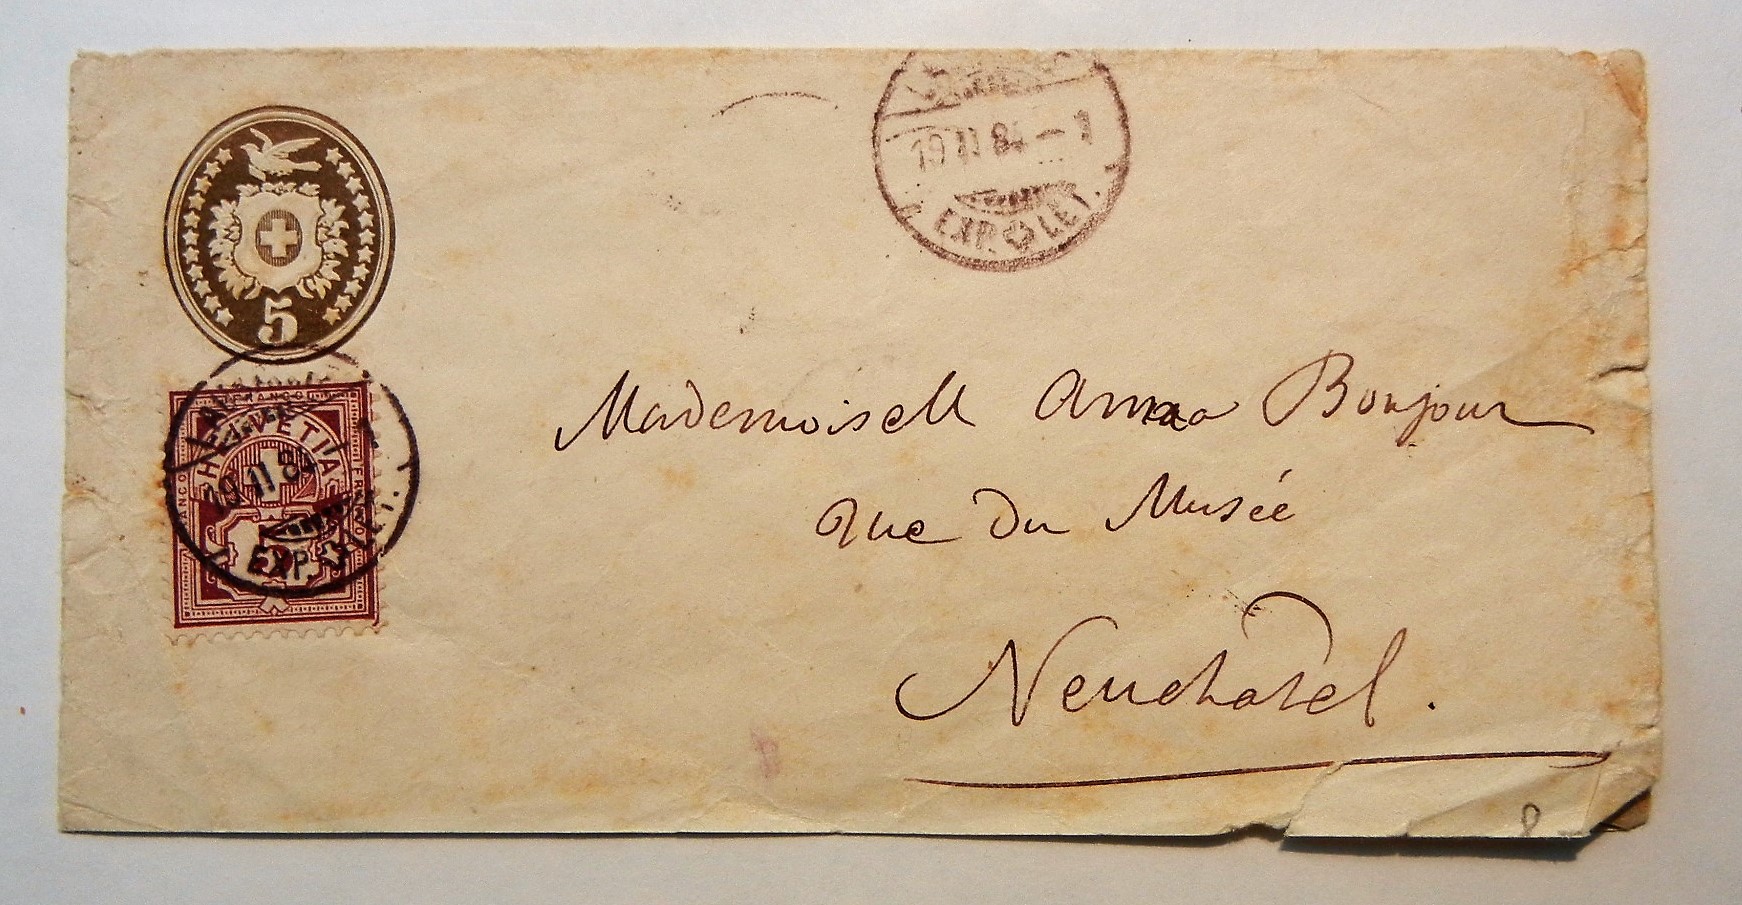 19 11 84 — 1
EXP. LET.
5
FRANCO
HELVETIA
19 11 84
EXP. LET.
Mademoisell Anna Bonjour
rue du Musée
Neuchatel.